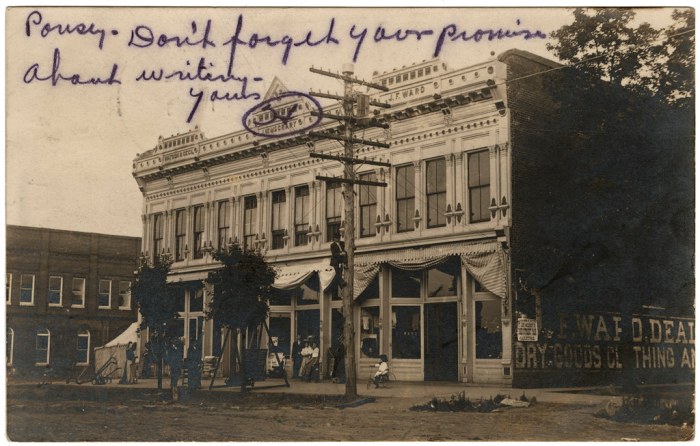 Pousy- Don't forget your promise
About writing-
yours
J.F. WARD
F. WARD, DEAL
DRY-GOODS CLOTHING A